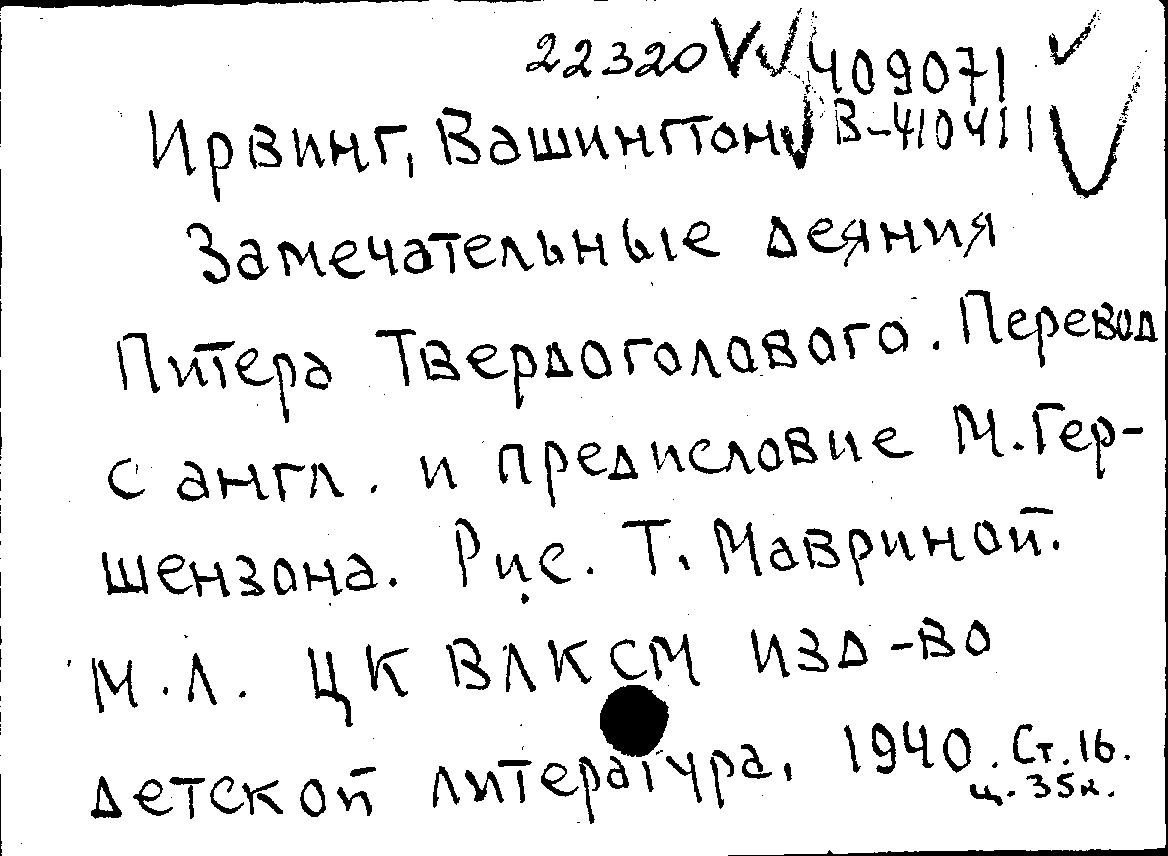 22320 409071
Ирвинг, Вашингтон В-410411
Замечательные деяния
Питера Твердоголавого. Перевод
с англ. и предисловие М. Гер-
шензона. Рис. Т. Мавриной.
М.Л. ЦК ВЛКСМ изд-во
детской литература, 1940. Ст. 16.
ц. 35к.